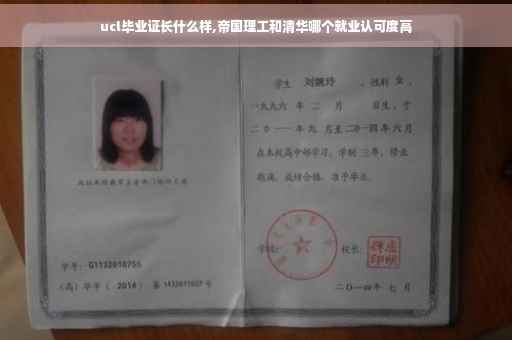 ucl毕业证长什么样,帝国理工和清华哪个就业认可度高
学生 刘婉玲 ,性别 女 ,
一九九六 年 二 月 日生,于
二〇一一年九 月至二〇一四年六月
在本校高中部学习,学制 三年,修业
期满,成绩合格,准予毕业。
学号: G1132010755
(高)毕字( 2014 )第 1432011027 号
学校:
校长:
二〇一四年 七 月